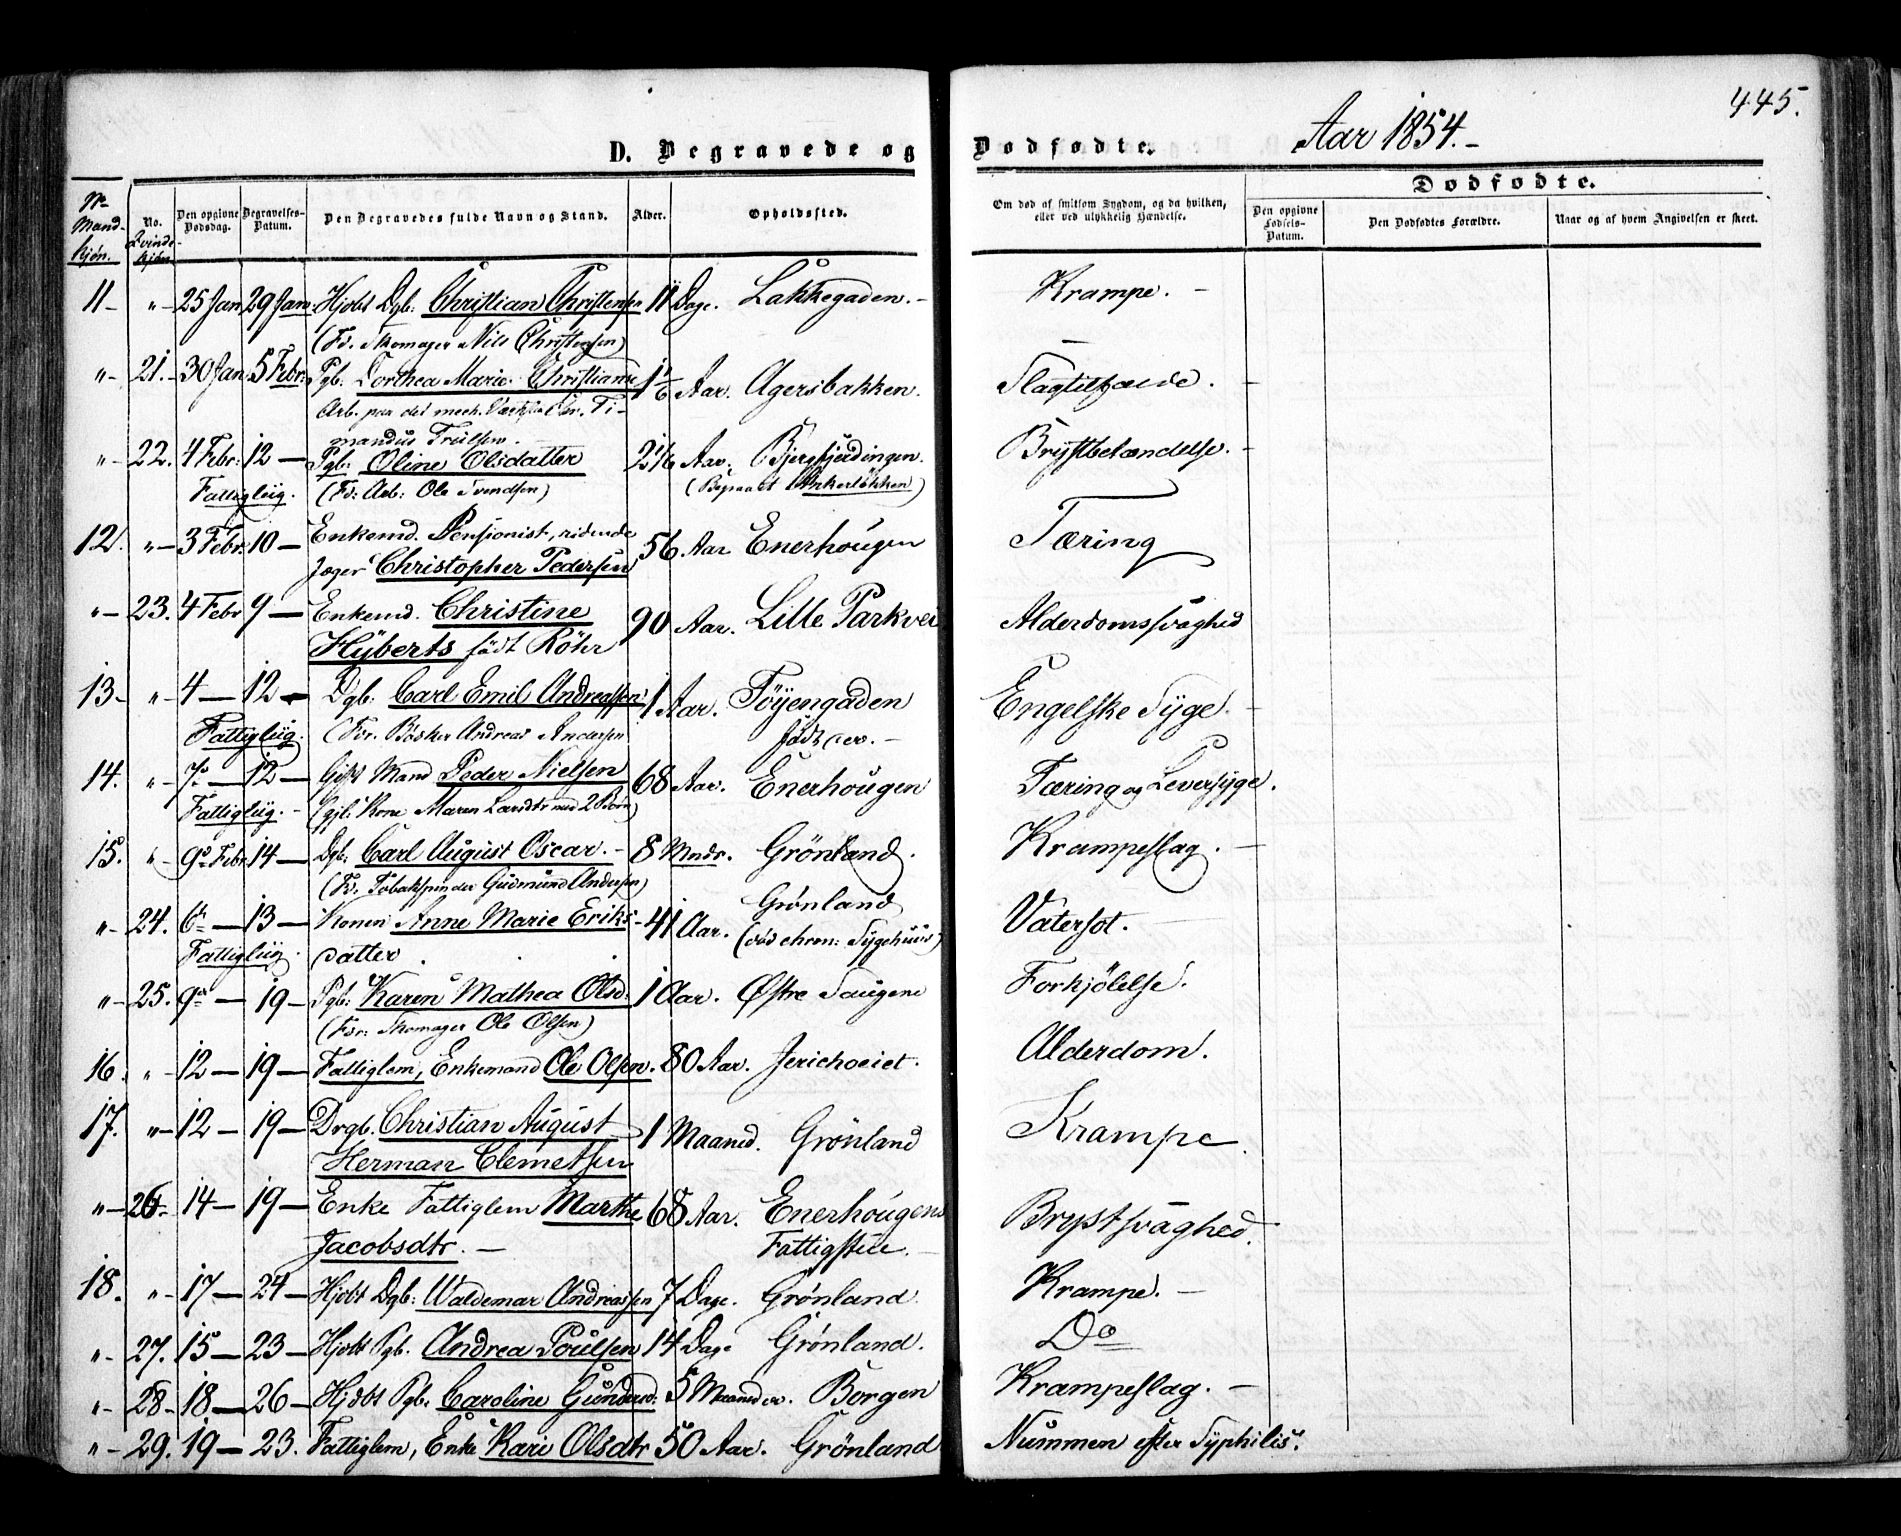 445.
Aar 1854.-
D. Begravede og Dødfødte.
Dødfødte.
No. Mandkjøn.
No. Qvindekjøn.
Den opgivne Dødsdag.
Begravelses-Datum.
Den Begravedes fulde Navn og Stand.
Alder.
Opholdssted.
Om død af smitsom Sygdom, og da hvilken, eller ved ulykkelig Hændelse.
Den opgivne Fødsels-Datum.
Den Dødfødtes Forældre.
Naar og af hvem Angivelsen er skeet.
11- „- 25 Jan 29 Jan. Hjdbt Dgb: Christian Christensen 11 Dage. Lakkegaden.- Krampe.-
(Fr. Skomager Nils Christensen)
„- 21.- 30 Jan 5 Febr: Pgb. Dorthea Marie Christiane 1 1/6 Aar. Agersbakken. Slagtilfælde.-
Arb. paa det mech. Ti-
mandus Trulsen.
„- 22. 4 Febr: 12- Pgb: Oline Olsdatter 2 1/6 Aar. Bjergfjerdingen. Brystbetændelse.-
Fattigliig. (Fr: Arb: Ole Svendsen) (Begravet Ankerløkken)
12. „- 3 Febr: 10- Enkemd. Pensionist, ridende 56 Aar Enerhougen Tæring
Jæger Christopher Pedersen
„- 23. 4 Febr 9- Enkemd. Christine 90 Aar. Lille Parkvei Alderdomssvaghed
Hyberts født Röhr
13- „- 4- 12- Dgb. Carl Emil Andreassen 1 Aar. Töyengaden Engelske Syge.-
Fattigliig. (Fr. Bødker Andreas Andersen født der.-
14. „- 7- 12- Gift Mand Peder Nielsen 68 Aar. Enerhougen Tæring og Leversyge.
Fattigliig.- (gjl: Kone Maren Larsdtr med 2 Børn)
15. „- 9 Febr 14- Dgb: Carl August Oscar.- 8 Mndr. Grönland. Krampeslag.-
(Fr. Tobakspinder Gudmund Andersen)
„- 24. 6- 13- Konen Anne Marie Eriks- 41 Aar. Grönland Vatersot.-
Fattigliig. datter. (død chron: Sygehuus)
„- 25. 9- 19- Pgb: Karen Mathea Olsd. 1 Aar. Østre Saugene Forkjölelse.
(For: Skomager Ole Olsen)
16. „- 12- 19- Fattiglem, Enkemand Ole Olsen. 80 Aar. Jerichoeiet. Alderdom.
17. „- 12- 19- Drgb. Christian August 1 Maaned. Grönland Krampe.
Herman Clemetsen
„- 26- 14- 19- Enke Fattiglem Marthe 68 Aar. Enerhougens Brystsvaghed.
Jacobsdtr.- Fattigstue.-
18. „- 17- 24- Hjdbt Dgb: Waldemar Andreassen 7 Dage. Grönland. Krampe.-
„- 27. 15- 23- Hjdbt Pgb. Andrea Poulsen 14 Dage Grönland. Do
„- 28- 18- 26- Hjdbt Pgb. Caroline Gundersd: 5 Maaneder. Borgen Krampeslag.-
„- 29. 19- 23. Fattiglem, Enke Kari Olsdtr 50 Aar. Grönland Nummen efter Syphilis.